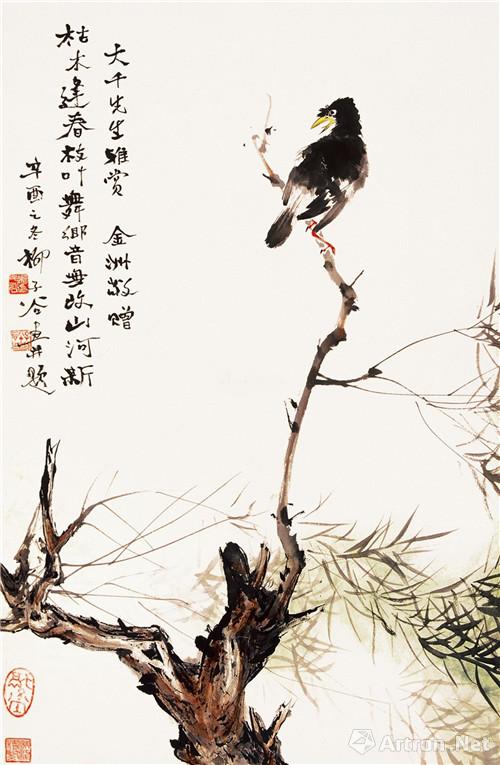 大千先生雅赏 金洲敬赠
枯木逢春枝叶舞乡音无改山河新
辛酉之冬柳子谷画并题
Artron.Net